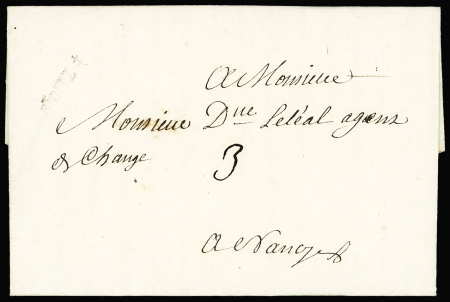 A Monsieur
Monsieur Dque Leléal agent
de Change
3
A Nancy